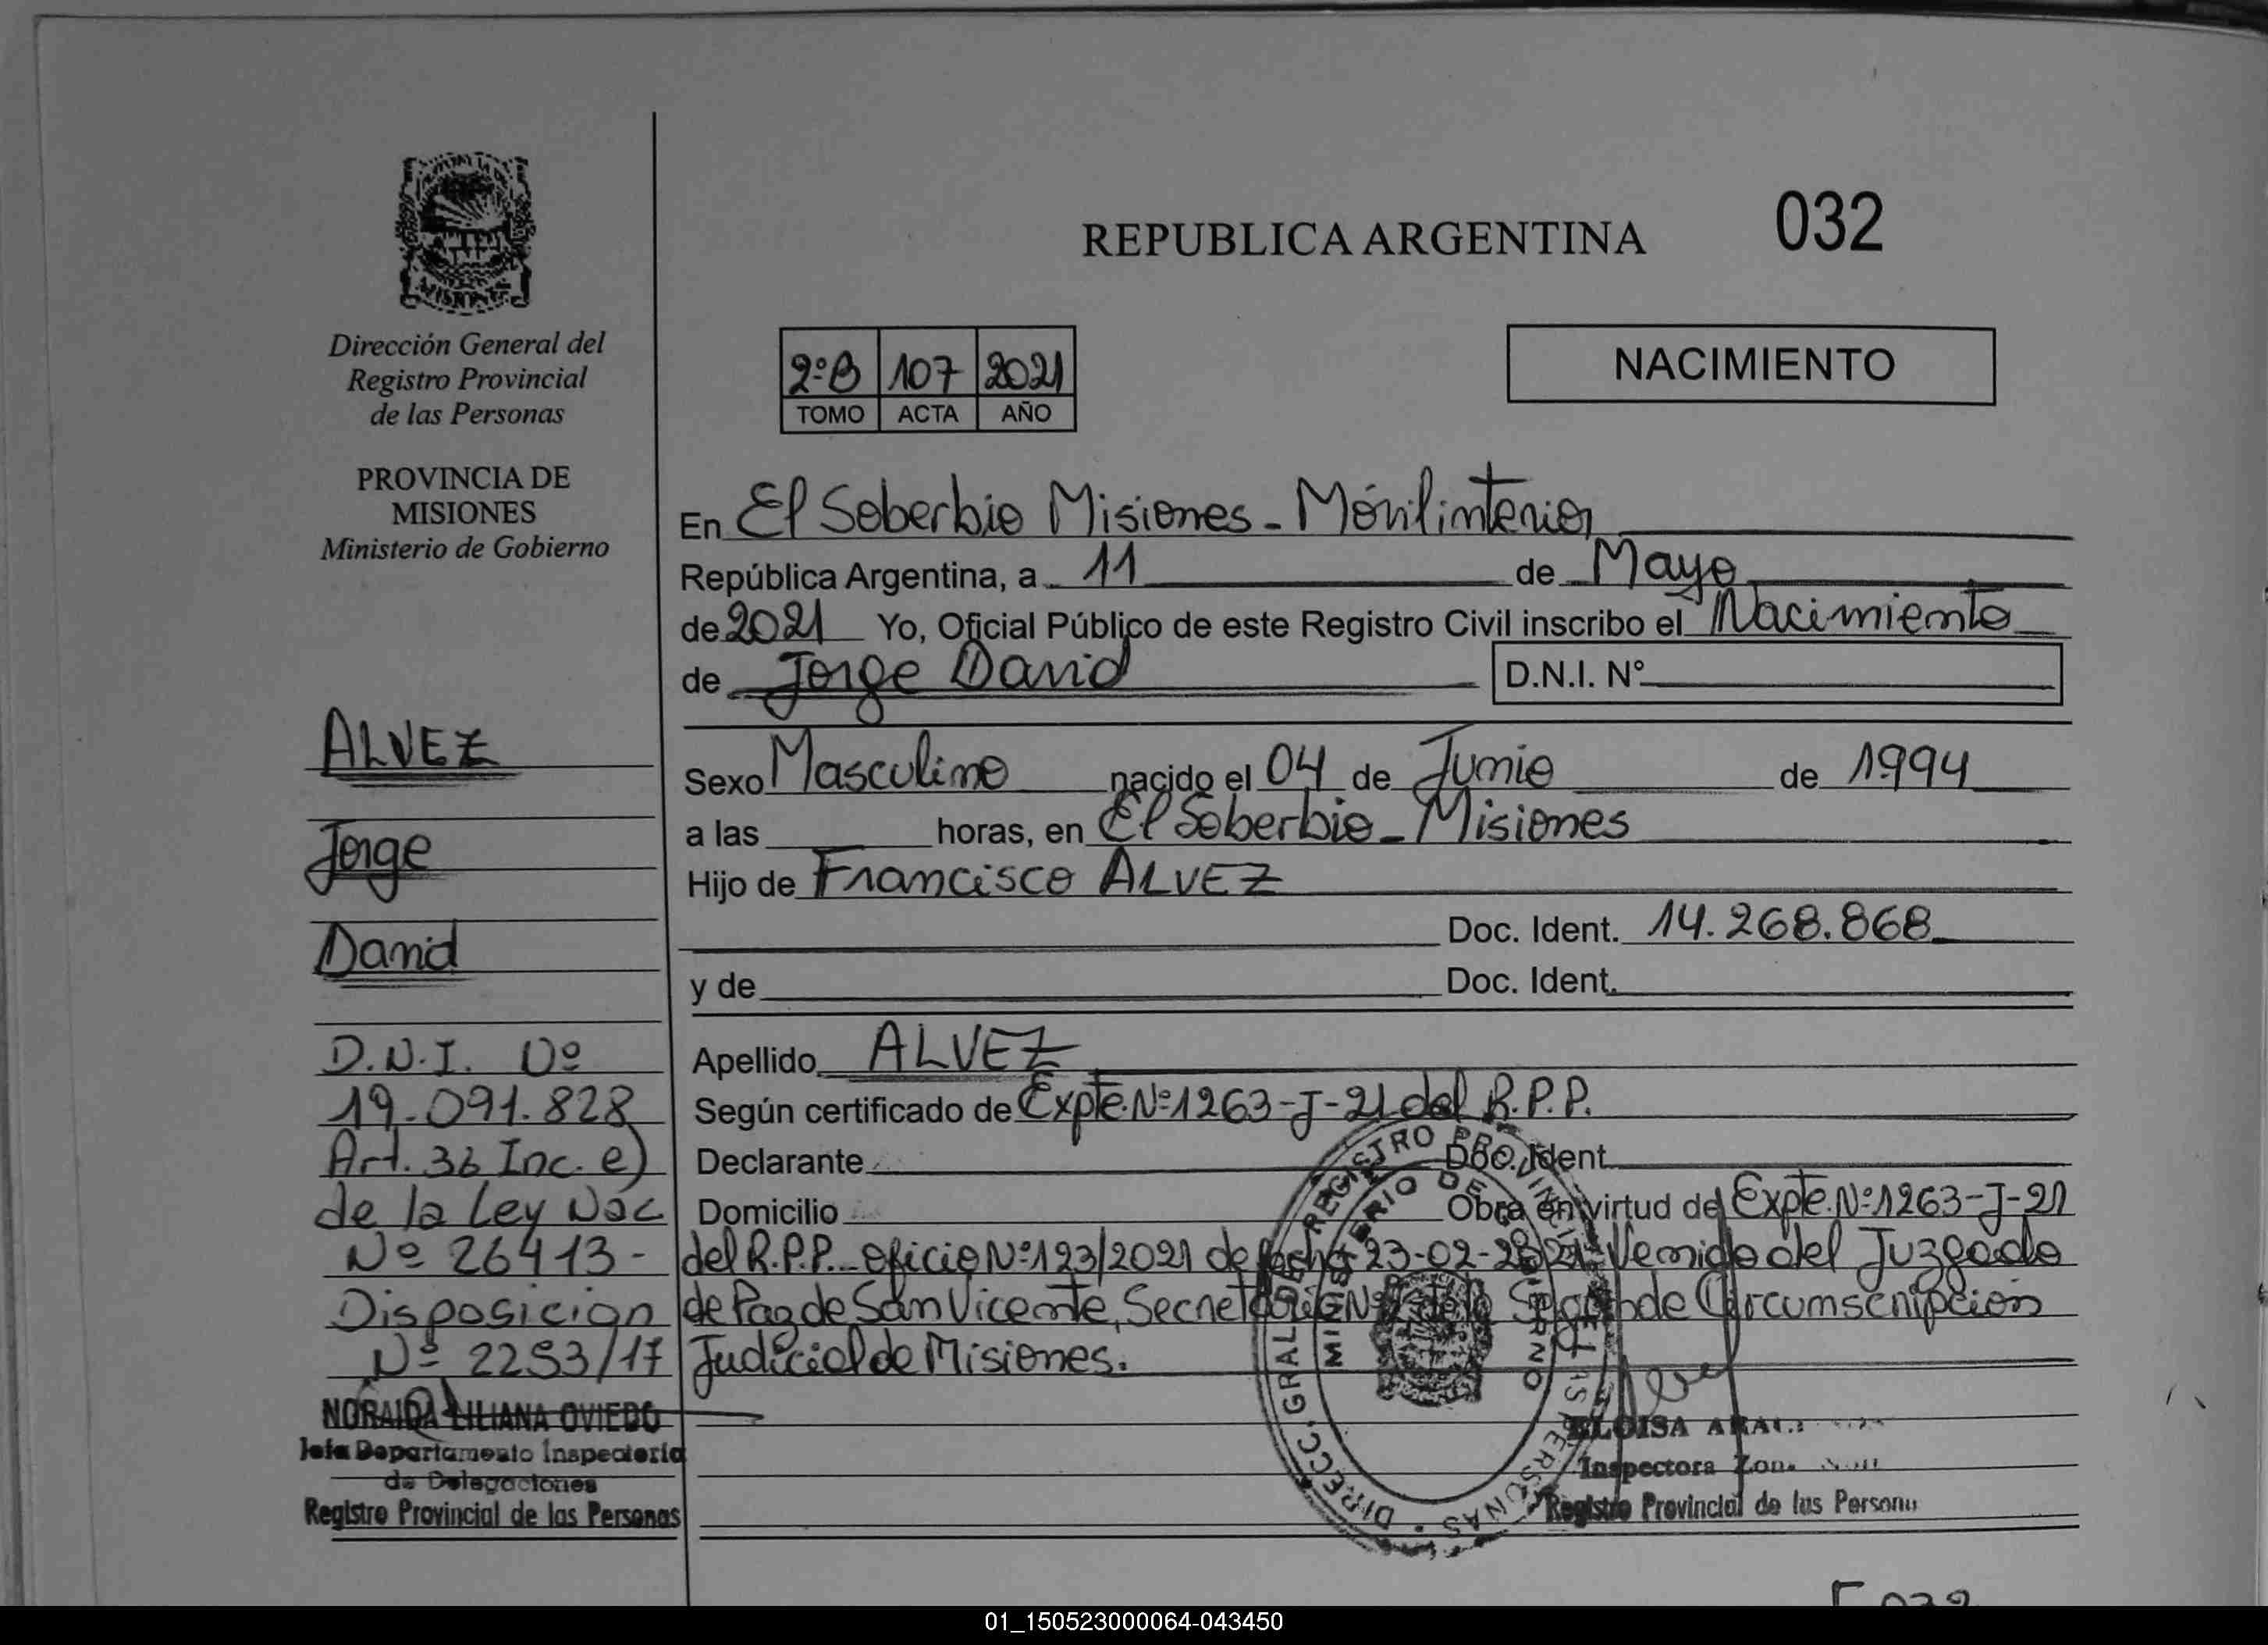 REPUBLICA ARGENTINA
032
Dirección General del
Registro Provincial
de las Personas
PROVINCIA DE
MISIONES
Ministerio de Gobierno
2ºB 107 2021
TOMO ACTA AÑO
NACIMIENTO
En El Soberbio Misiones - Móvil interior
República Argentina, a 11 de Mayo
de 2021 Yo, Oficial Público de este Registro Civil inscribo el Nacimiento
de Jorge David D.N.I. Nº
Sexo Masculino nacido el 04 de Junio de 1994
a las horas, en El Soberbio - Misiones
Hijo de Francisco ALVEZ
Doc. Ident. 14.268.868
y de Doc. Ident.
Apellido ALVEZ
Según certificado de Expte. Nº 1263-J-21 del R.P.P.
Declarante Doc. Ident.
Domicilio Obra en virtud de Expte. Nº 1263-J-21
del R.P.P. oficio Nº 123/2021 de fecha 23-02-2021 Venido del Juzgado
de Paz de San Vicente, de Circumscripción
Judicial de Misiones.
ALVEZ
Jorge
David
D.N.I. Nº
19.091.828
Art. 36 Inc. e)
de la Ley Nac
Nº 26413-
Disposicion
Nº 2253/17
NORAIDA LILIANA OVIEDO
Jefa Departamento Inspectoria
de Delegaciones
Registro Provincial de las Personas
DIRECC. GRAL. DEL REGISTRO PROVINCIAL DE LAS PERSONAS
MINISTERIO DE GOBIERNO
ELOISA
Inspectora Zona
Registro Provincial de las Persona
01_150523000064-043450